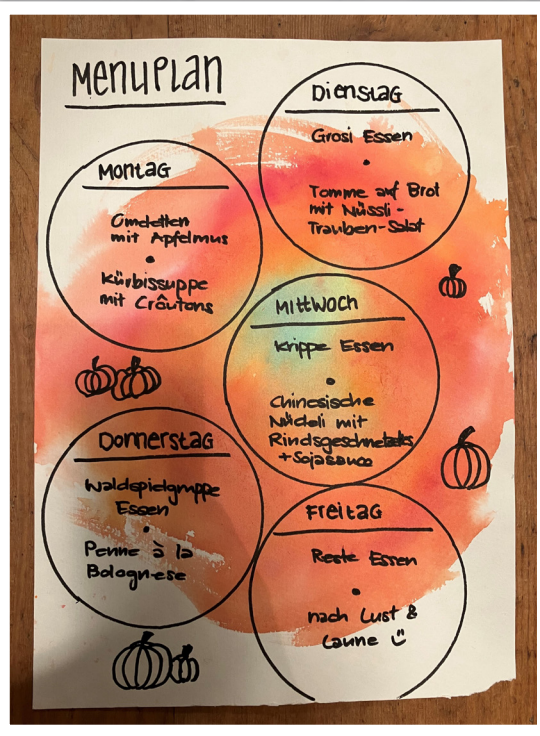 Menuplan
Montag
Omeletten
mit Apfelmus
•
Kürbissuppe
mit Croûtons
Dienstag
Grosi Essen
•
Tomme auf Brot
mit Nüssli-
Trauben-Salat
Mittwoch
Krippe Essen
•
Chinesische
Nüdeli mit
Rindsgeschnetzeltes
+ Sojasauce
Donnerstag
Waldspielgruppe
Essen
•
Penne à la
Bolognese
Freitag
Reste Essen
•
nach Lust &
Laune